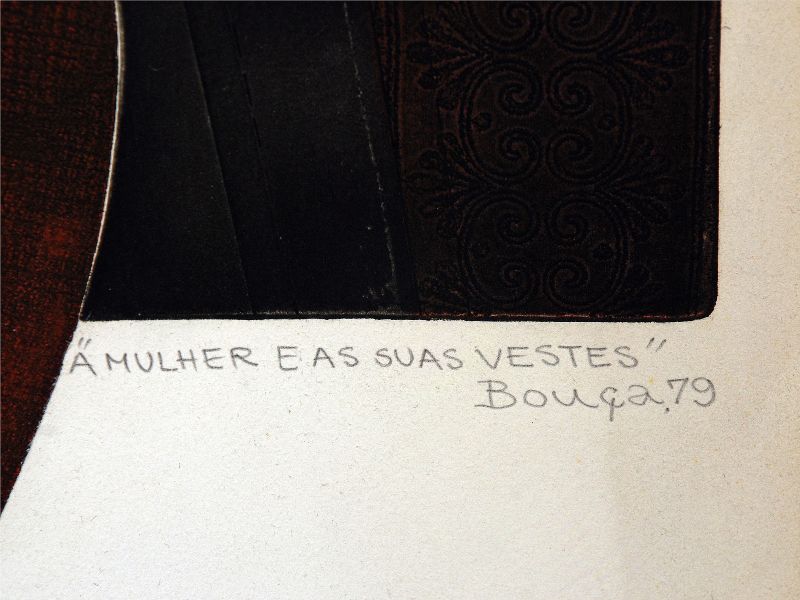 "A MULHER E AS SUAS VESTES"
Bouça, 79